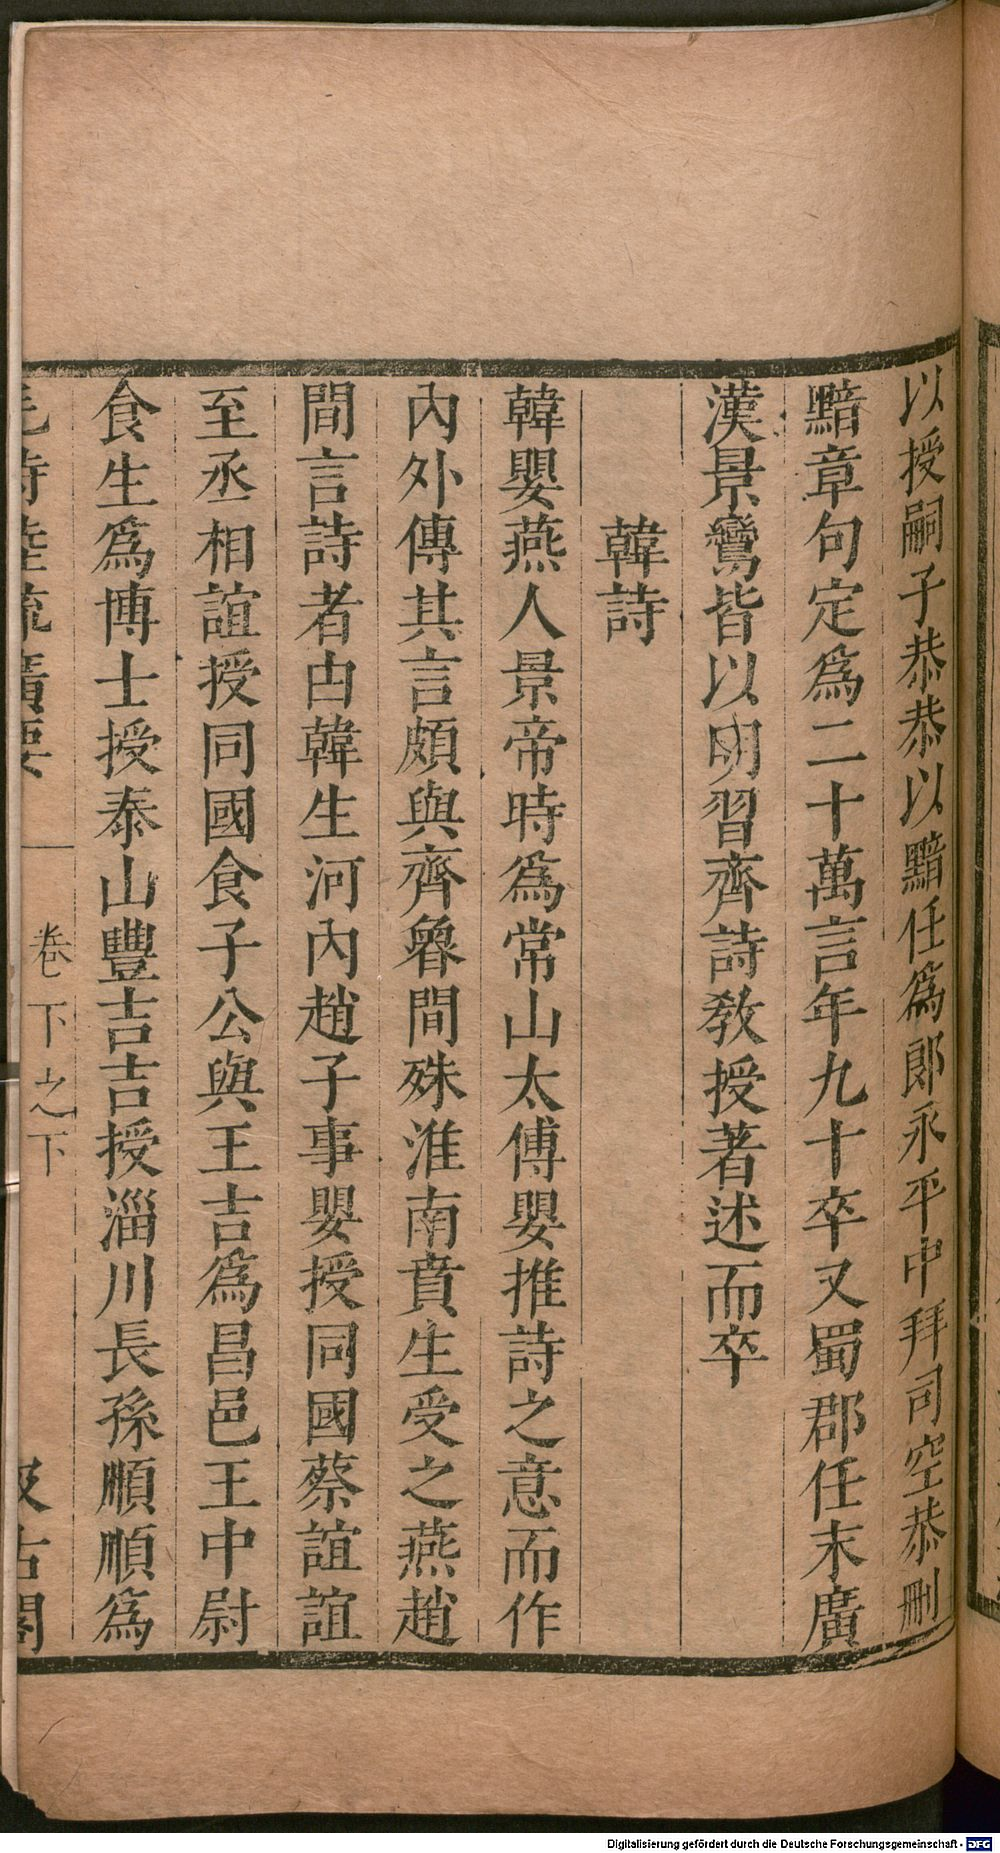 以授嗣子恭恭以黯任爲郎永平中拜司空恭刪
黯章句定爲二十萬言年九十卒又蜀郡任末廣
漢景鸞皆以明習齊詩教授著述而卒
韓詩
韓嬰燕人景帝時爲常山太傅嬰推詩之意而作
內外傳其言頗與齊魯間殊淮南賁生受之燕趙
間言詩者由韓生河內趙子事嬰授同國蔡誼誼
至丞相誼授同國食子公與王吉爲昌邑王中尉
食生爲博士授泰山豐吉吉授淄川長孫順順爲
毛詩陸疏廣要
卷下之下
汲古閣
Digitalisierung gefördert durch die Deutsche Forschungsgemeinschaft - DFG